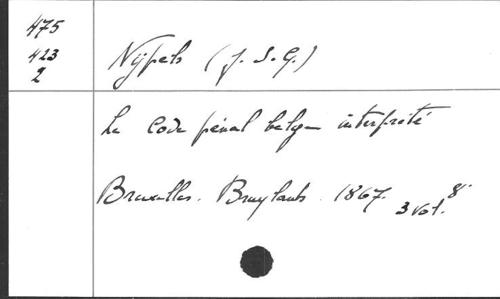 475
423
2
Nypels (J. S. G.)
Le Code pénal belge interprété
Bruxelles. Bruylants. 1867. 3 vol. 8°